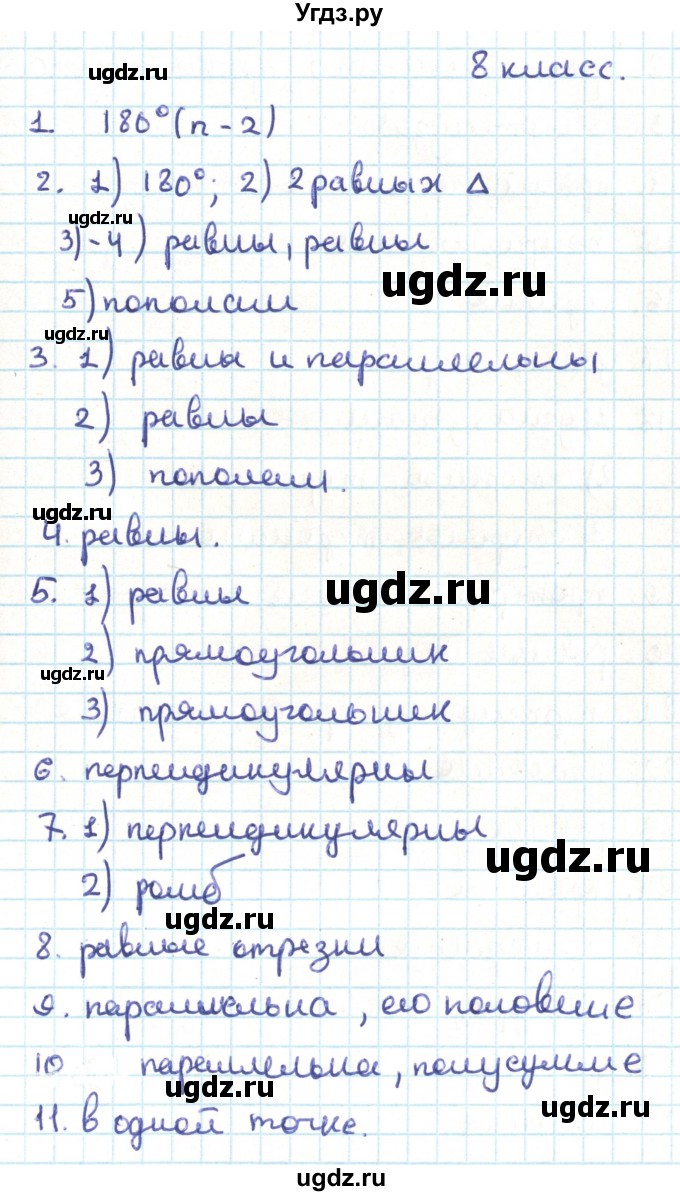 Угдз.ру
ugdz.ru
8 класс.
1. 180°(n-2)
2. 1) 180°; 2) 2 равных Δ
ugdz.ru
3)-4) равны, равны
ugdz.ru
5) пополам
ugdz.ru
3. 1) равны и параллельны
2) равны
3) пополам.
ugdz.ru
4. равны.
5. 1) равны
ugdz.ru
2) прямоугольник
ugdz.ru
3) прямоугольник
6. перпендикулярны
7. 1) перпендикулярны
ugdz.ru
2) ромб
ugdz.ru
8. равные отрезки
9. параллельна, его половине
10 параллельна, полусумме
ugdz.ru
11. в одной точке.
ugdz.ru